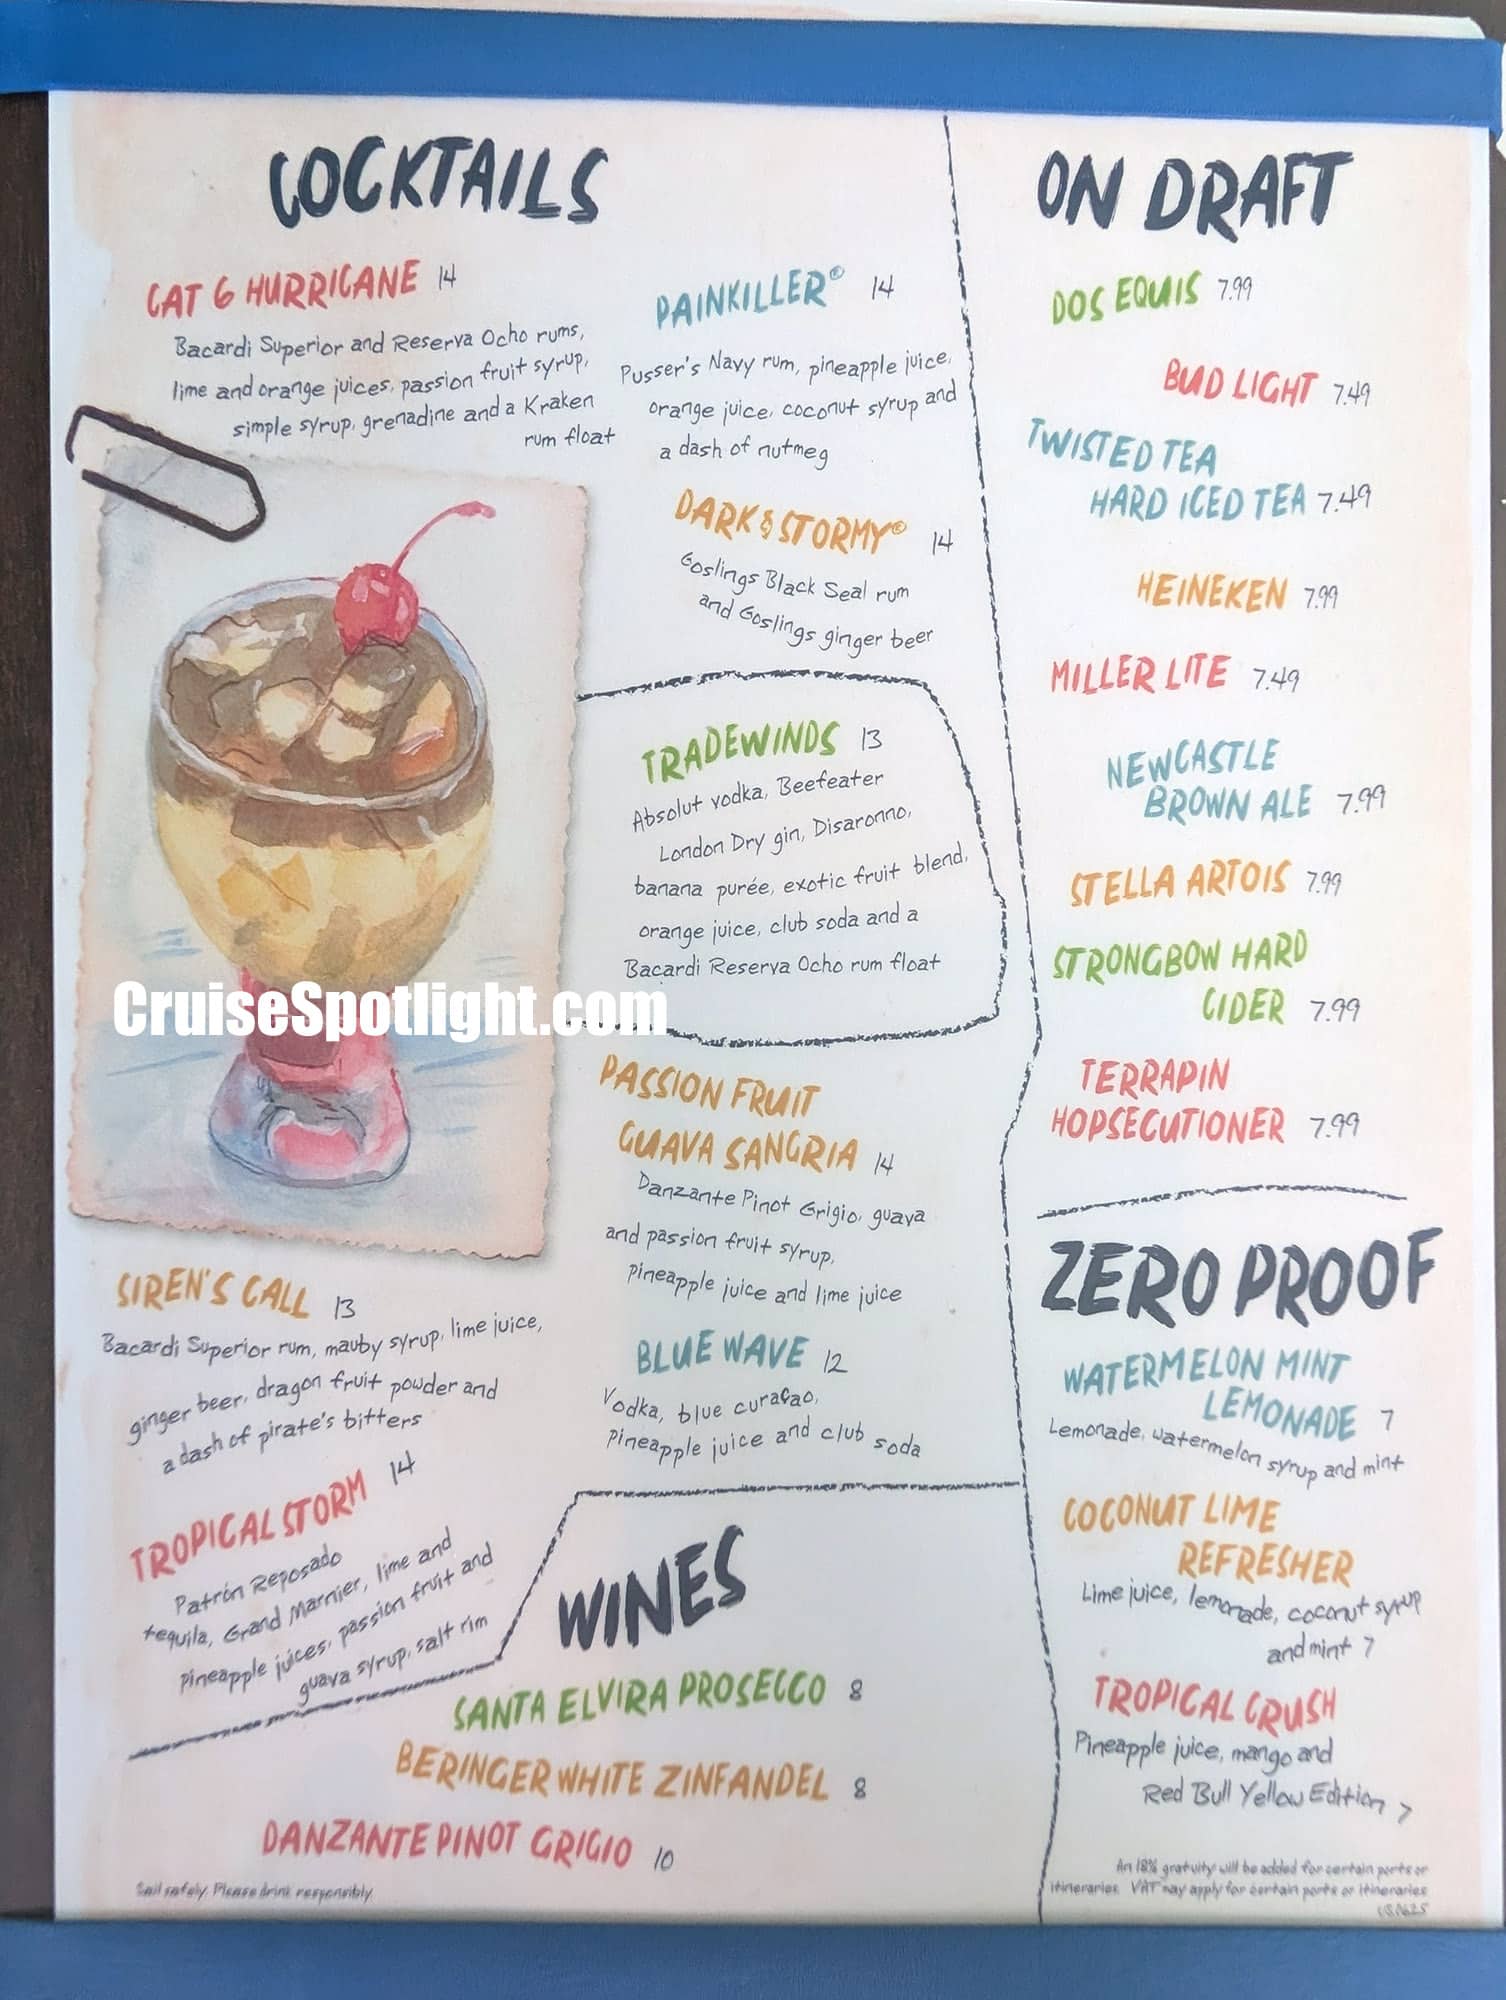 COCKTAILS
CAT 6 HURRICANE 14
Bacardi Superior and Reserva Ocho rums,
lime and orange juices, passion fruit syrup,
simple syrup, grenadine and a Kraken
rum float
PAINKILLER® 14
Pusser's Navy rum, pineapple juice,
orange juice, coconut syrup and
a dash of nutmeg
DARK & STORMY® 14
Goslings Black Seal rum
and Goslings ginger beer
TRADEWINDS 13
Absolut vodka, Beefeater
London Dry gin, Disaronno,
banana purée, exotic fruit blend,
orange juice, club soda and a
Bacardi Reserva Ocho rum float
CruiseSpotlight.com
PASSION FRUIT
GUAVA SANGRIA 14
Danzante Pinot Grigio, guava
and passion fruit syrup,
pineapple juice and lime juice
SIREN'S CALL 13
Bacardi Superior rum, mauby syrup, lime juice,
ginger beer, dragon fruit powder and
a dash of pirate's bitters
BLUE WAVE 12
Vodka, blue curaçao,
pineapple juice and club soda
TROPICAL STORM 14
Patrón Reposado
tequila, Grand Marnier, lime and
pineapple juices, passion fruit and
guava syrup, salt rim
WINES
SANTA ELVIRA PROSECCO 8
BERINGER WHITE ZINFANDEL 8
DANZANTE PINOT GRIGIO 10
Sail safely. Please drink responsibly.
ON DRAFT
DOS EQUIS 7.99
BUD LIGHT 7.49
TWISTED TEA
HARD ICED TEA 7.49
HEINEKEN 7.99
MILLER LITE 7.49
NEWCASTLE
BROWN ALE 7.99
STELLA ARTOIS 7.99
STRONGBOW HARD
CIDER 7.99
TERRAPIN
HOPSECUTIONER 7.99
ZERO PROOF
WATERMELON MINT
LEMONADE 7
Lemonade, watermelon syrup and mint
COCONUT LIME
REFRESHER
Lime juice, lemonade, coconut syrup
and mint 7
TROPICAL CRUSH
Pineapple juice, mango and
Red Bull Yellow Edition 7
An 18% gratuity will be added for certain ports or
itineraries. VAT may apply for certain ports or itineraries